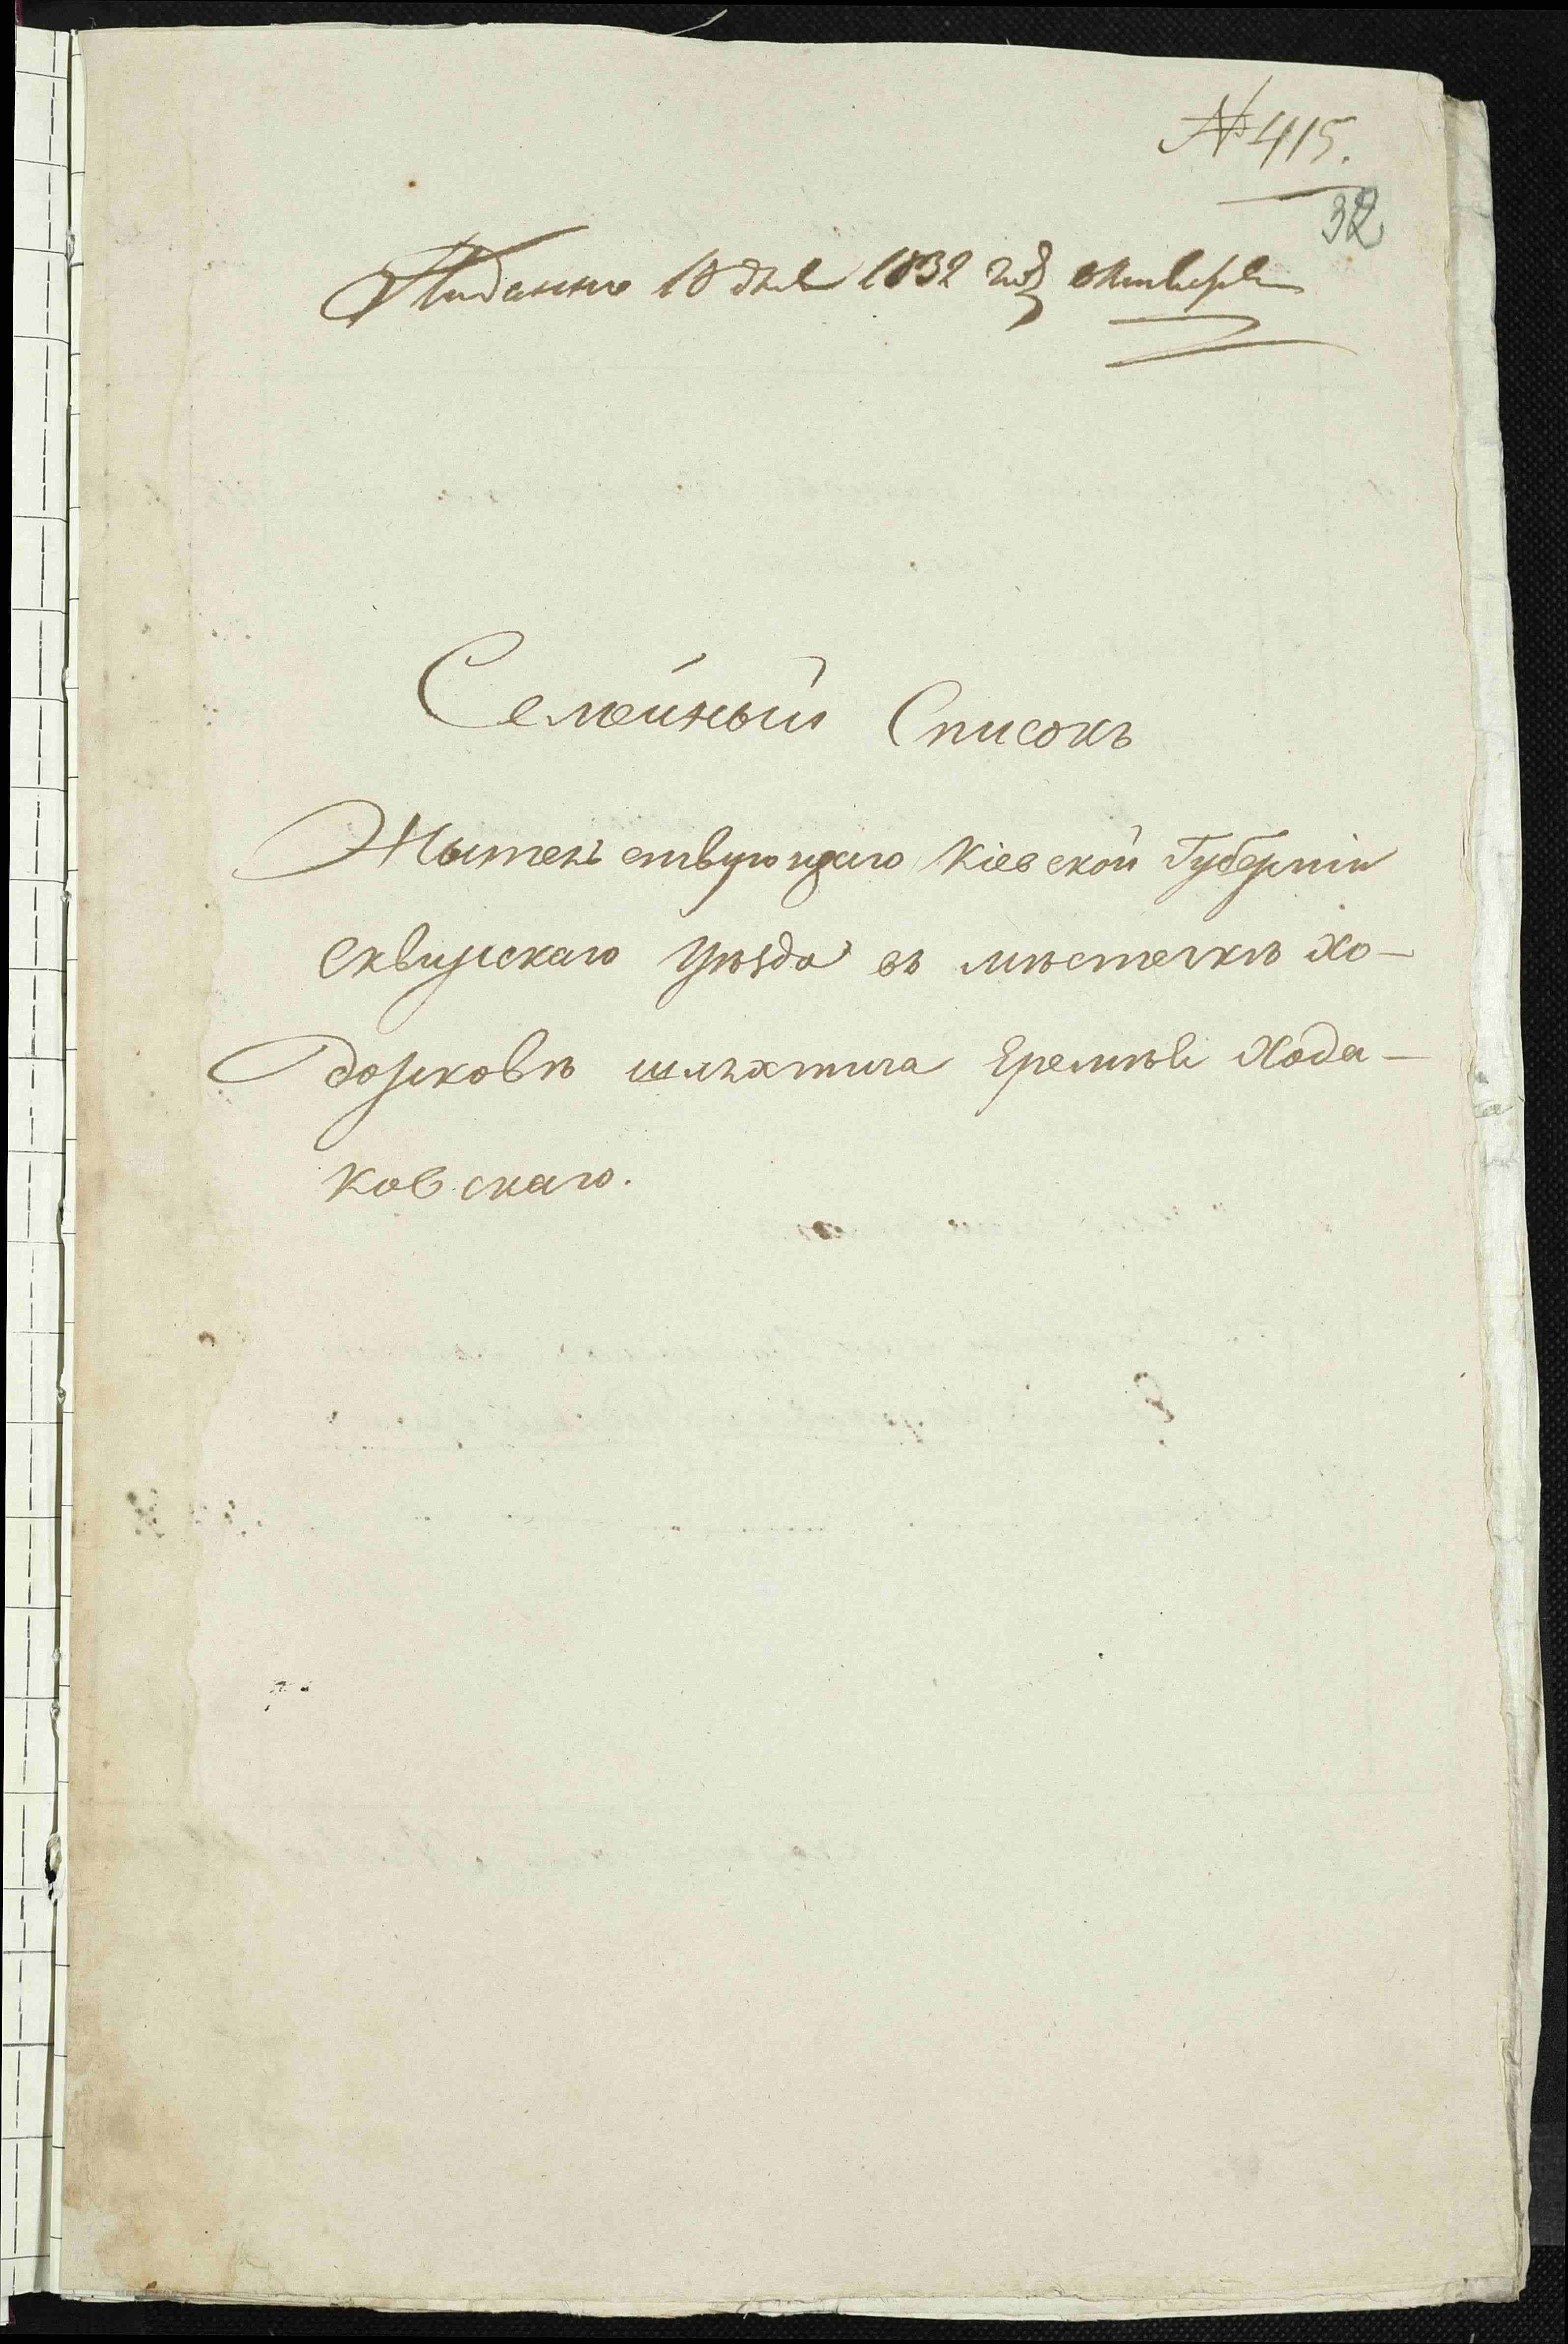 № 415.
32
Поданно 10 дня 1832 года октября
Семейный Списокъ
Жытельствующаго Кіевской Губерніи
Сквирскаго уѣзда въ мѣстечкѣ Хо-
дорковѣ шляхтича Еремѣя Хода-
ковскаго.